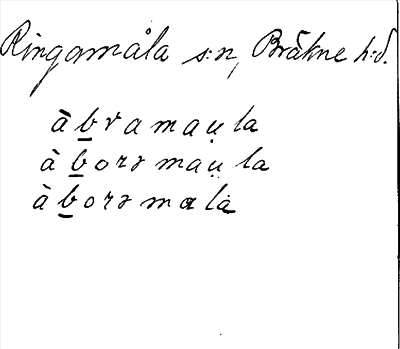 Ringamåla s:n, Bräkne h:d.
à b̲v a m a ṳ la
à b̲orə ma ṳ la
à b̲orə m a la